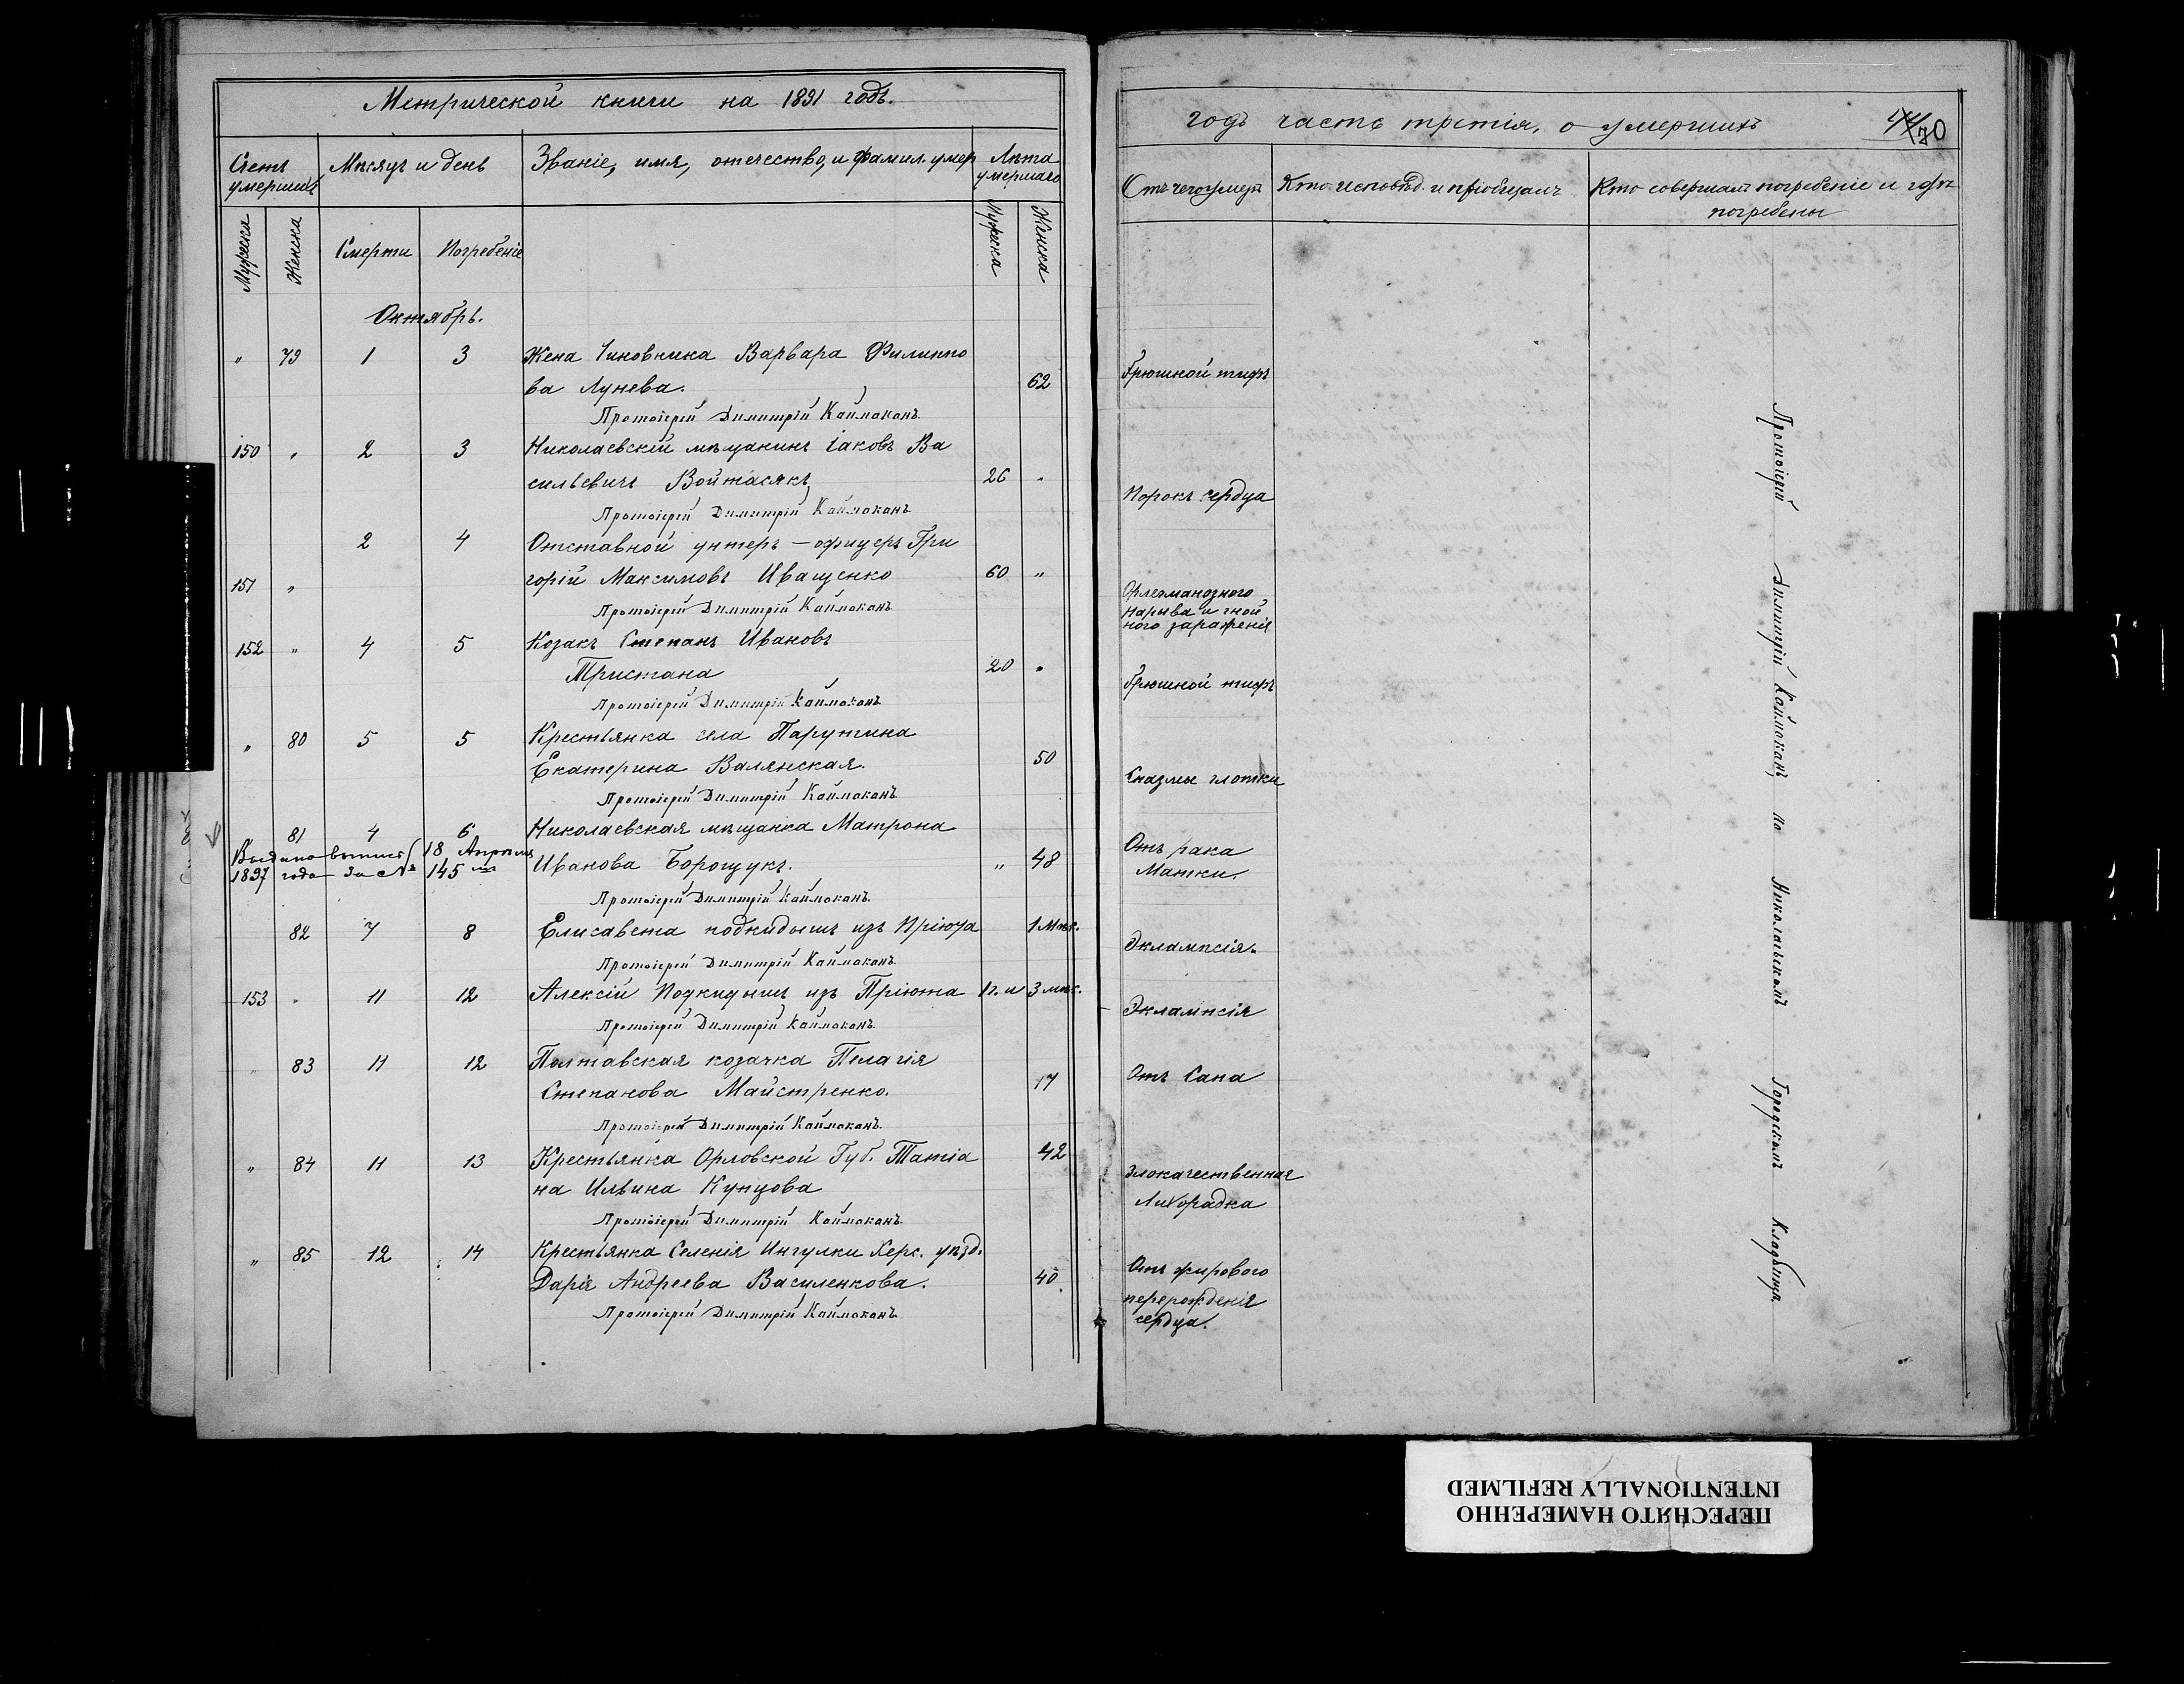 Метрической книги на 1891 годъ.
Счетъ умершихъ
Мѣсяцъ и день
Званіе, имя, отечество, и фамил. умер
Лѣта умершаго
Мужеска
Женска
Смерти
Погребеніе
Мужеска
Женска
Октябрь.
" 79 1 3 Жена Чиновника Варвара Филиппо
ва Лунева. 62
Протоіерей Димитрій Каймаканъ
150 " 2 3 Николаевскій мѣщанинъ Іаковъ Ва
сильевичъ Войтасякъ 26 "
Протоіерей Димитрій Каймаканъ
2 4 Отставной унтеръ-офицеръ Гри
151 " горій Максимовъ Иващенко 60 "
Протоіерей Димитрій Каймаканъ
152 " 4 5 Козакъ Степанъ Ивановъ
Тристана 20 "
Протоіерей Димитрій Каймаканъ
" 80 5 5 Крестьянка села Парутина
Екатерина Валянская. 50
Протоіерей Димитрій Каймаканъ
81 4 6 Николаевская мѣщанка Матрона
Выдана выпись 18 Апрѣля
1897 года за № 145
Иванова Борощукъ. " 48
Протоіерей Димитрій Каймаканъ.
82 7 8 Елисавета подкидышъ изъ Пріюта 1 мѣс.
Протоіерей Димитрій Каймаканъ.
153 " 11 12 Алексій Подкидышъ изъ Пріюта 1 г. и 3 мѣс.
Протоіерей Димитрій Каймаканъ
" 83 11 12 Полтавская козачка Пелагія
Степанова Майстренко. 17
Протоіерей Димитрій Каймаканъ.
" 84 11 13 Крестьянка Орловской Губ. Татіа 42
на Ильина Купцова
Протоіерей Димитрій Каймаканъ
" 85 12 14 Крестьянка Селенія Ингулки Херс. уѣзд.
Дарія Андреева Василенкова. 40.
Протоіерей Димитрій Каймаканъ
годъ часть третія, о умершихъ
70
Отъ чего умеръ
Кто исповѣд. и пріобщалъ
Кто совершалъ погребеніе и гдѣ
погребены
Брюшной тифъ
Порокъ сердца
Флегманознаго
нарыва и гной
ного зараженія
Брюшной тифъ
Спазмы глотки
Отъ рака
Матки.
Эклампсія.
Эклампсія
Отъ Сапа
Злокачественная
Лихорадка
Отъ жирового
перерожденія
сердца.
Протоіерей Димитрій Каймаканъ по Николаевскомъ Городскомъ Кладбища
ПЕРЕСНЯТО НАМЕРЕННО
INTENTIONALLY REFILMED